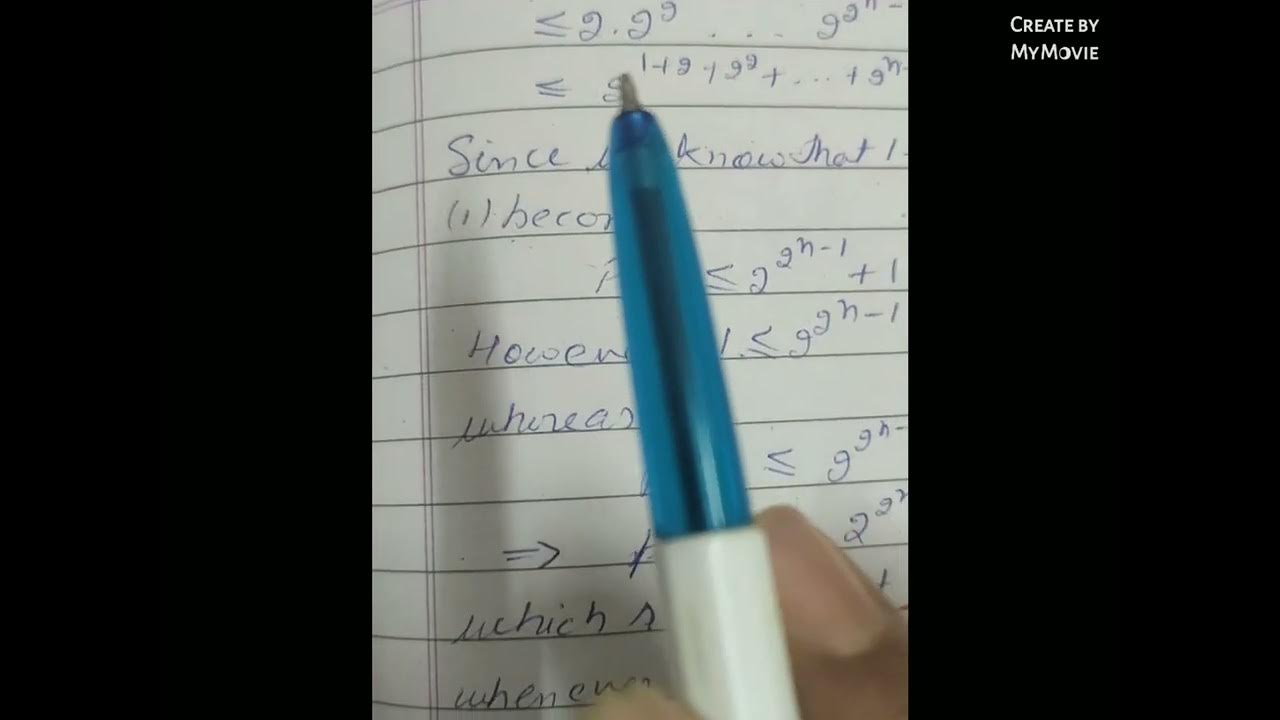 ≤ 2.2² ... 2^2^n-
≤ 2^1+2+2²+...+2^n-
Since know that 1
(1) becom
≤ 2^2^n-1 + 1
Howev 1 ≤ 2^2^n-1
whereas
≤ 2^2^n-
⇒ 2^2^n
which s
whenever
CREATE BY
MYMOVIE